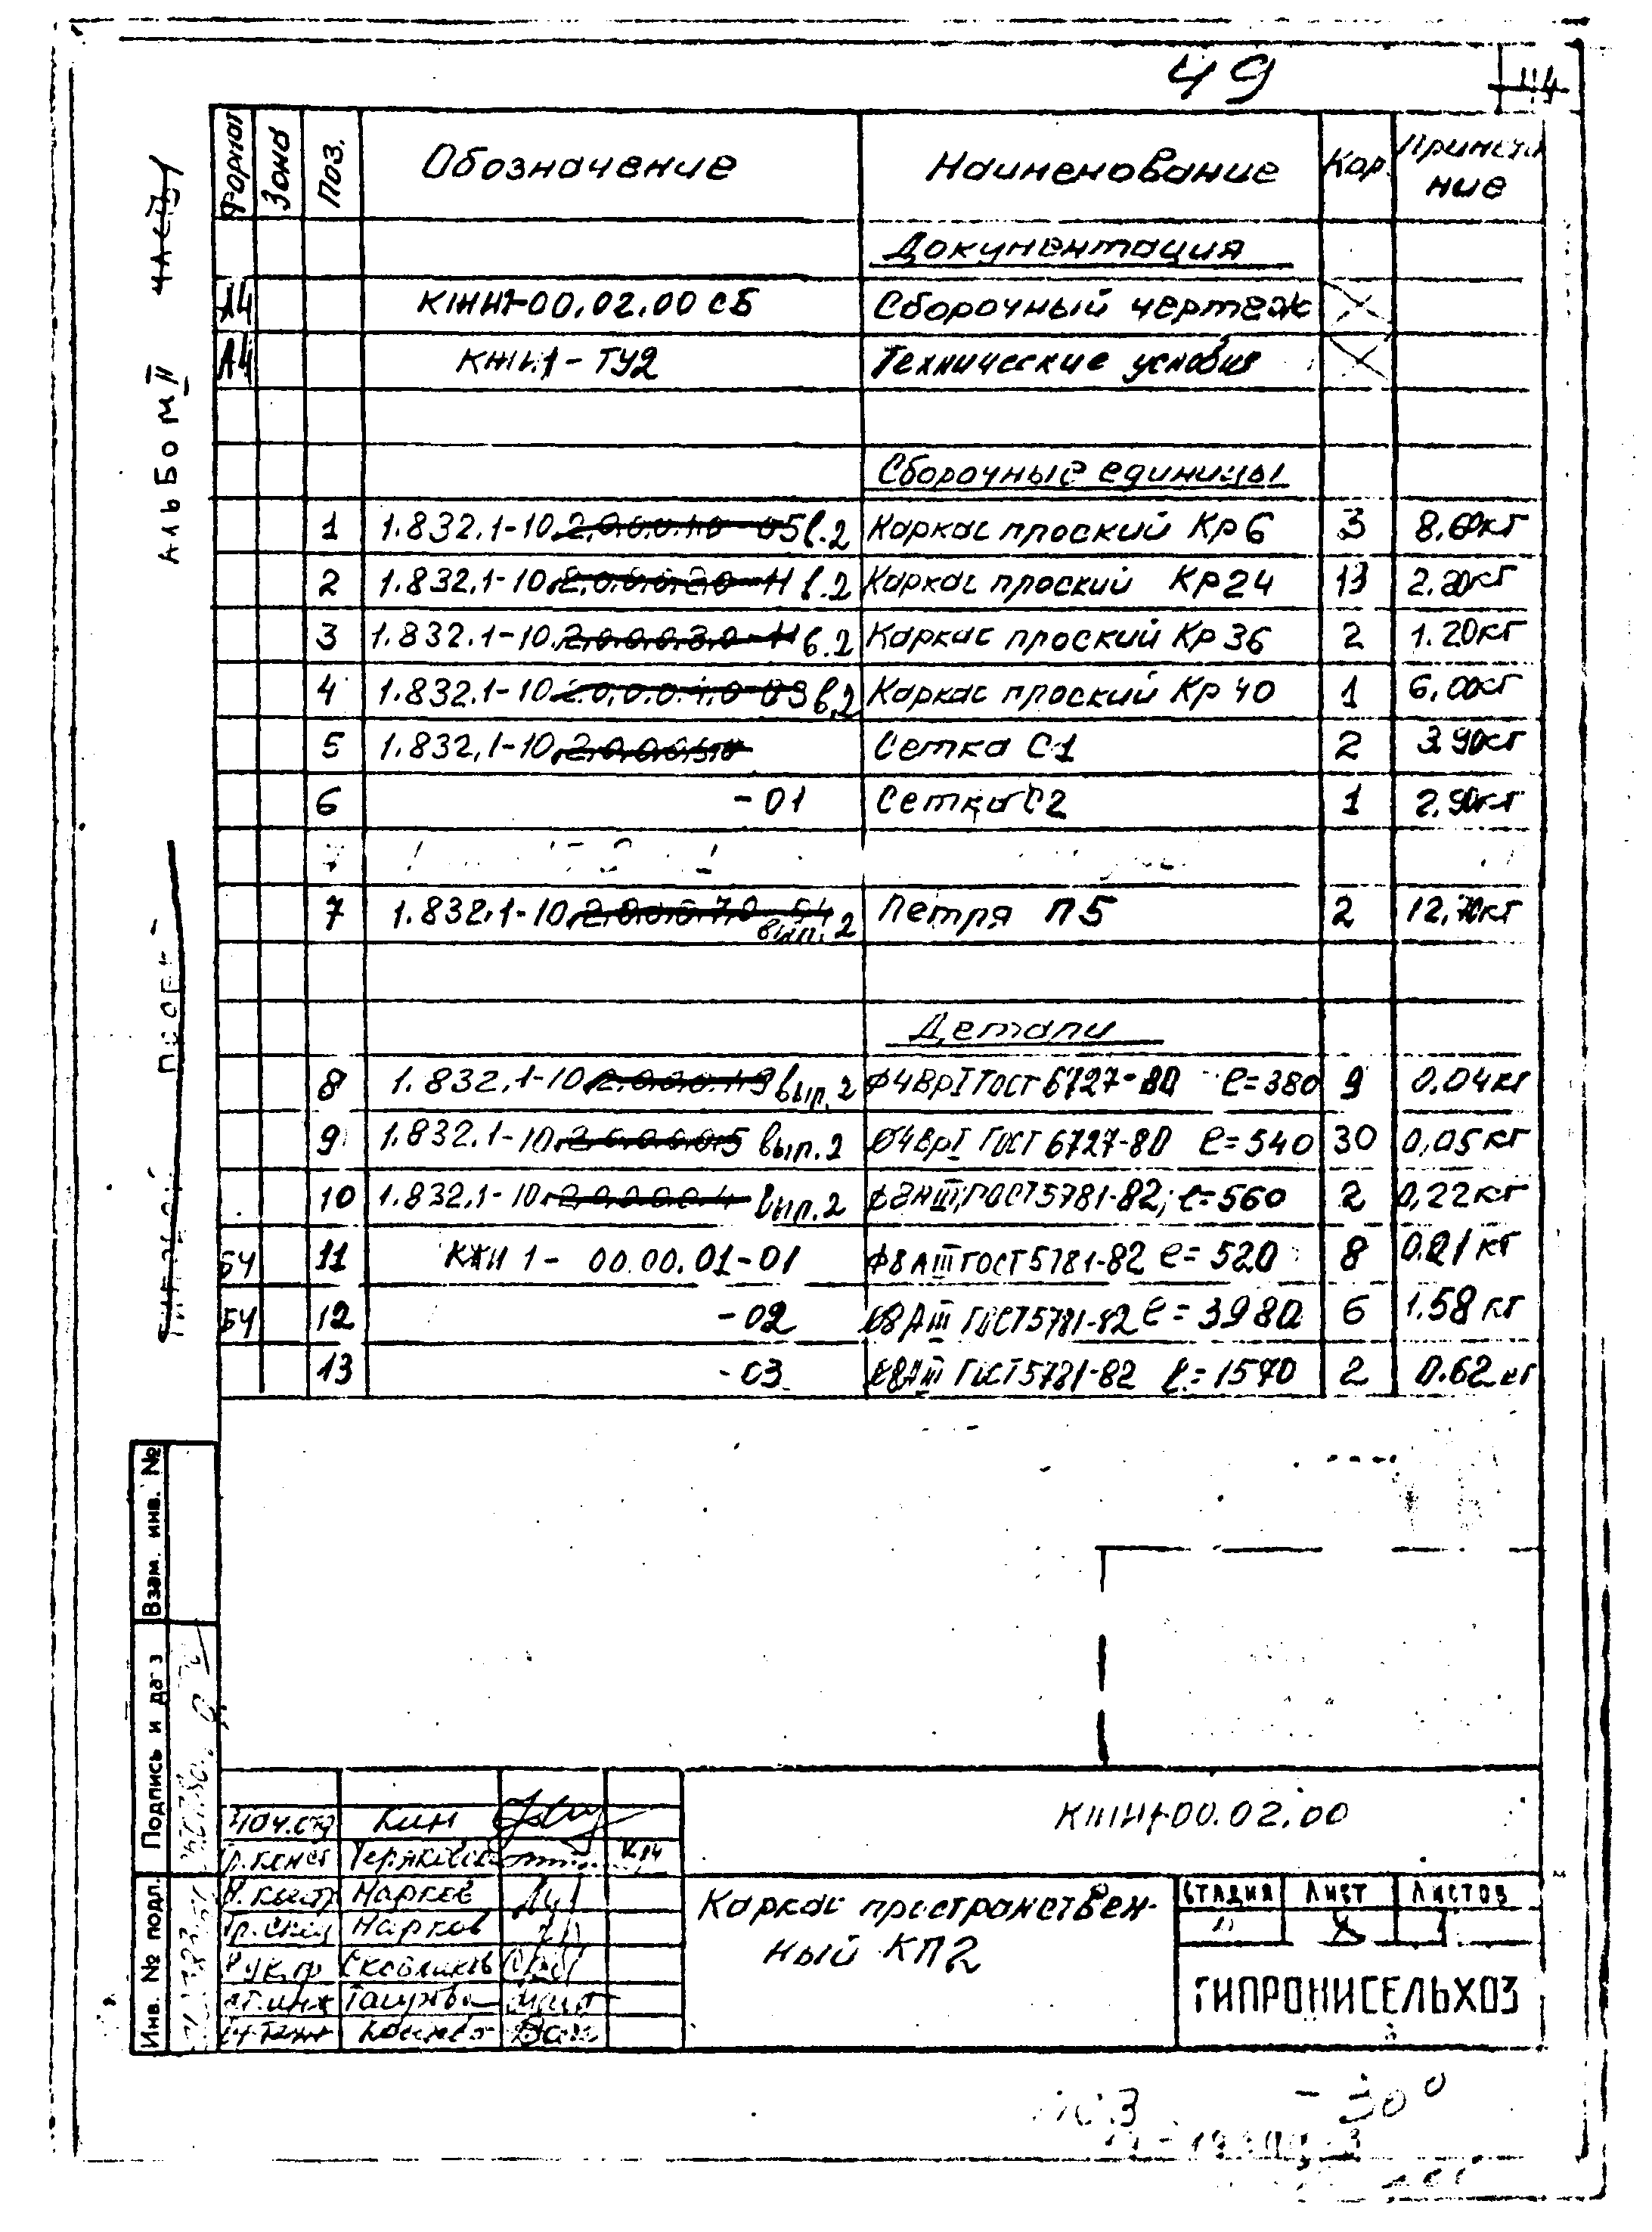 49
Формат Зона Поз. Обозначение Наименование Кол. Примеча
ние
Документация
А4 КЖИ1-00.02.00 СБ Сборочный чертеж X
А4 КЖИ.1-ТУ2 Технические условия X
Сборочные единицы
1 1.832.1-10.2.0.0.1.0-05 в.2 Каркас плоский Кр6 3 8.60кг
2 1.832.1-10.2.0.0.2.0-11 в.2 Каркас плоский Кр24 13 2.20кг
3 1.832.1-10.2.0.0.3.0-11 в.2 Каркас плоский Кр36 2 1.20кг
4 1.832.1-10.2.0.0.4.0-03 в.2 Каркас плоский Кр40 1 6,00кг
5 1.832.1-10.2.0.0.5.0 Сетка С1 2 3.90кг
6 -01 Сетка С2 1 2.90кг
7 1.832.1-10.2.0.0.7.0-04 вып.2 Петля П5 2 12,70кг
Детали
8 1.832.1-10 вып.2 ф4ВрI ГОСТ 6727-80 ℓ=380 9 0.04кг
9 1.832.1-10 вып.2 Ø4ВрI ГОСТ 6727-80 ℓ=540 30 0,05кг
10 1.832.1-10 вып.2 ф8АIII, ГОСТ 5781-82; ℓ=560 2 0,22кг
БЧ 11 КЖИ 1- 00.00.01-01 ф8АIII ГОСТ 5781-82 ℓ=520 8 0.21кг
БЧ 12 -02 Ø8АIII ГОСТ 5781-82 ℓ=3980 6 1.58кг
13 -03 Ø8АIII ГОСТ 5781-82 ℓ=1570 2 0.62кг
АЛЬБОМ II ЧАСТЬ
Взам. инв. №
Подпись и дата
Инв. № подл.
Нач.отд Кин
КЖИ1-00.02.00
Н.контр Марков
Марков
Каркас пространствен-
ный КП2
Стадия Лист Листов
ГИПРОНИСЕЛЬХОЗ